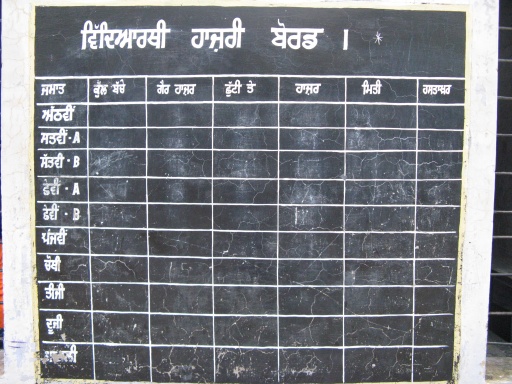 ਵਿੱਦਿਆਰਥੀ ਹਾਜ਼ਰੀ ਬੋਰਡ । *
ਜਮਾਤ ਕੁੱਲ ਬੱਚੇ ਗੈਰ ਹਾਜ਼ਰ ਛੁੱਟੀ ਤੇ ਹਾਜ਼ਰ ਮਿਤੀ ਹਸਤਾਖਰ
ਅੱਠਵੀਂ
ਸਤਵੀਂ · A
ਸੱਤਵੀਂ · B
ਛੇਵੀਂ · A
ਛੇਵੀਂ · B
ਪੰਜਵੀਂ
ਚੌਥੀ
ਤੀਜੀ
ਦੂਜੀ